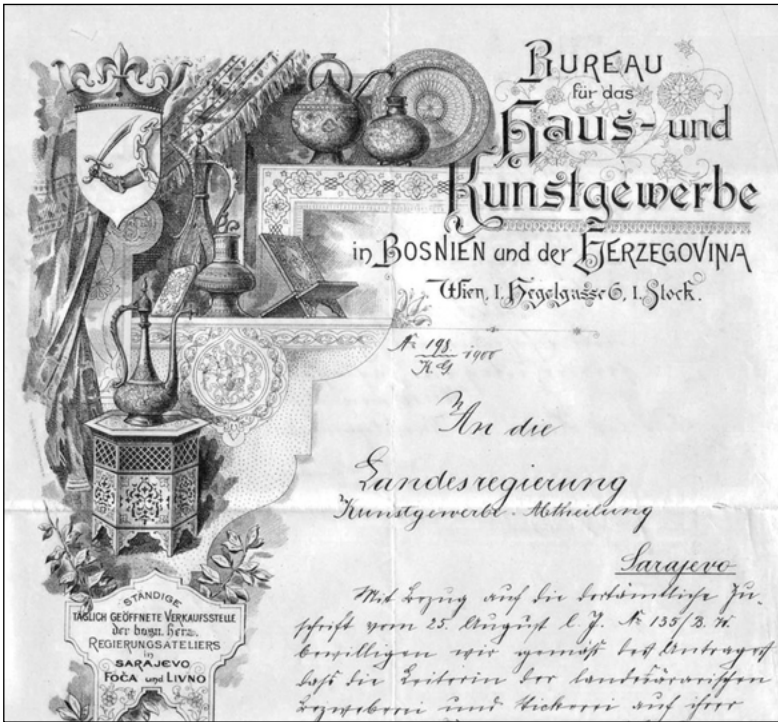 BUREAU
für das
Haus- und
Kunstgewerbe
in BOSNIEN und der HERZEGOVINA
Wien, I. Hegelgasse 6, I. Stock.
№ 198 1900
K. G.
An die
Landesregierung
Kunstgewerbe-Abtheilung
Sarajevo
Mit Bezug auf die dortämtliche Zu-
schrift vom 25. August l. J. № 135/B. W.
bewilligen wir gemäß des Antrages
daß die Leiterin der landesärarischen
Bezweberei und Stickerei auf ihrer
STÄNDIGE
TÄGLICH GEÖFFNETE VERKAUFSSTELLE
der bosn. herz.
REGIERUNGSATELIERS
in
SARAJEVO
FOČA und LIVNO